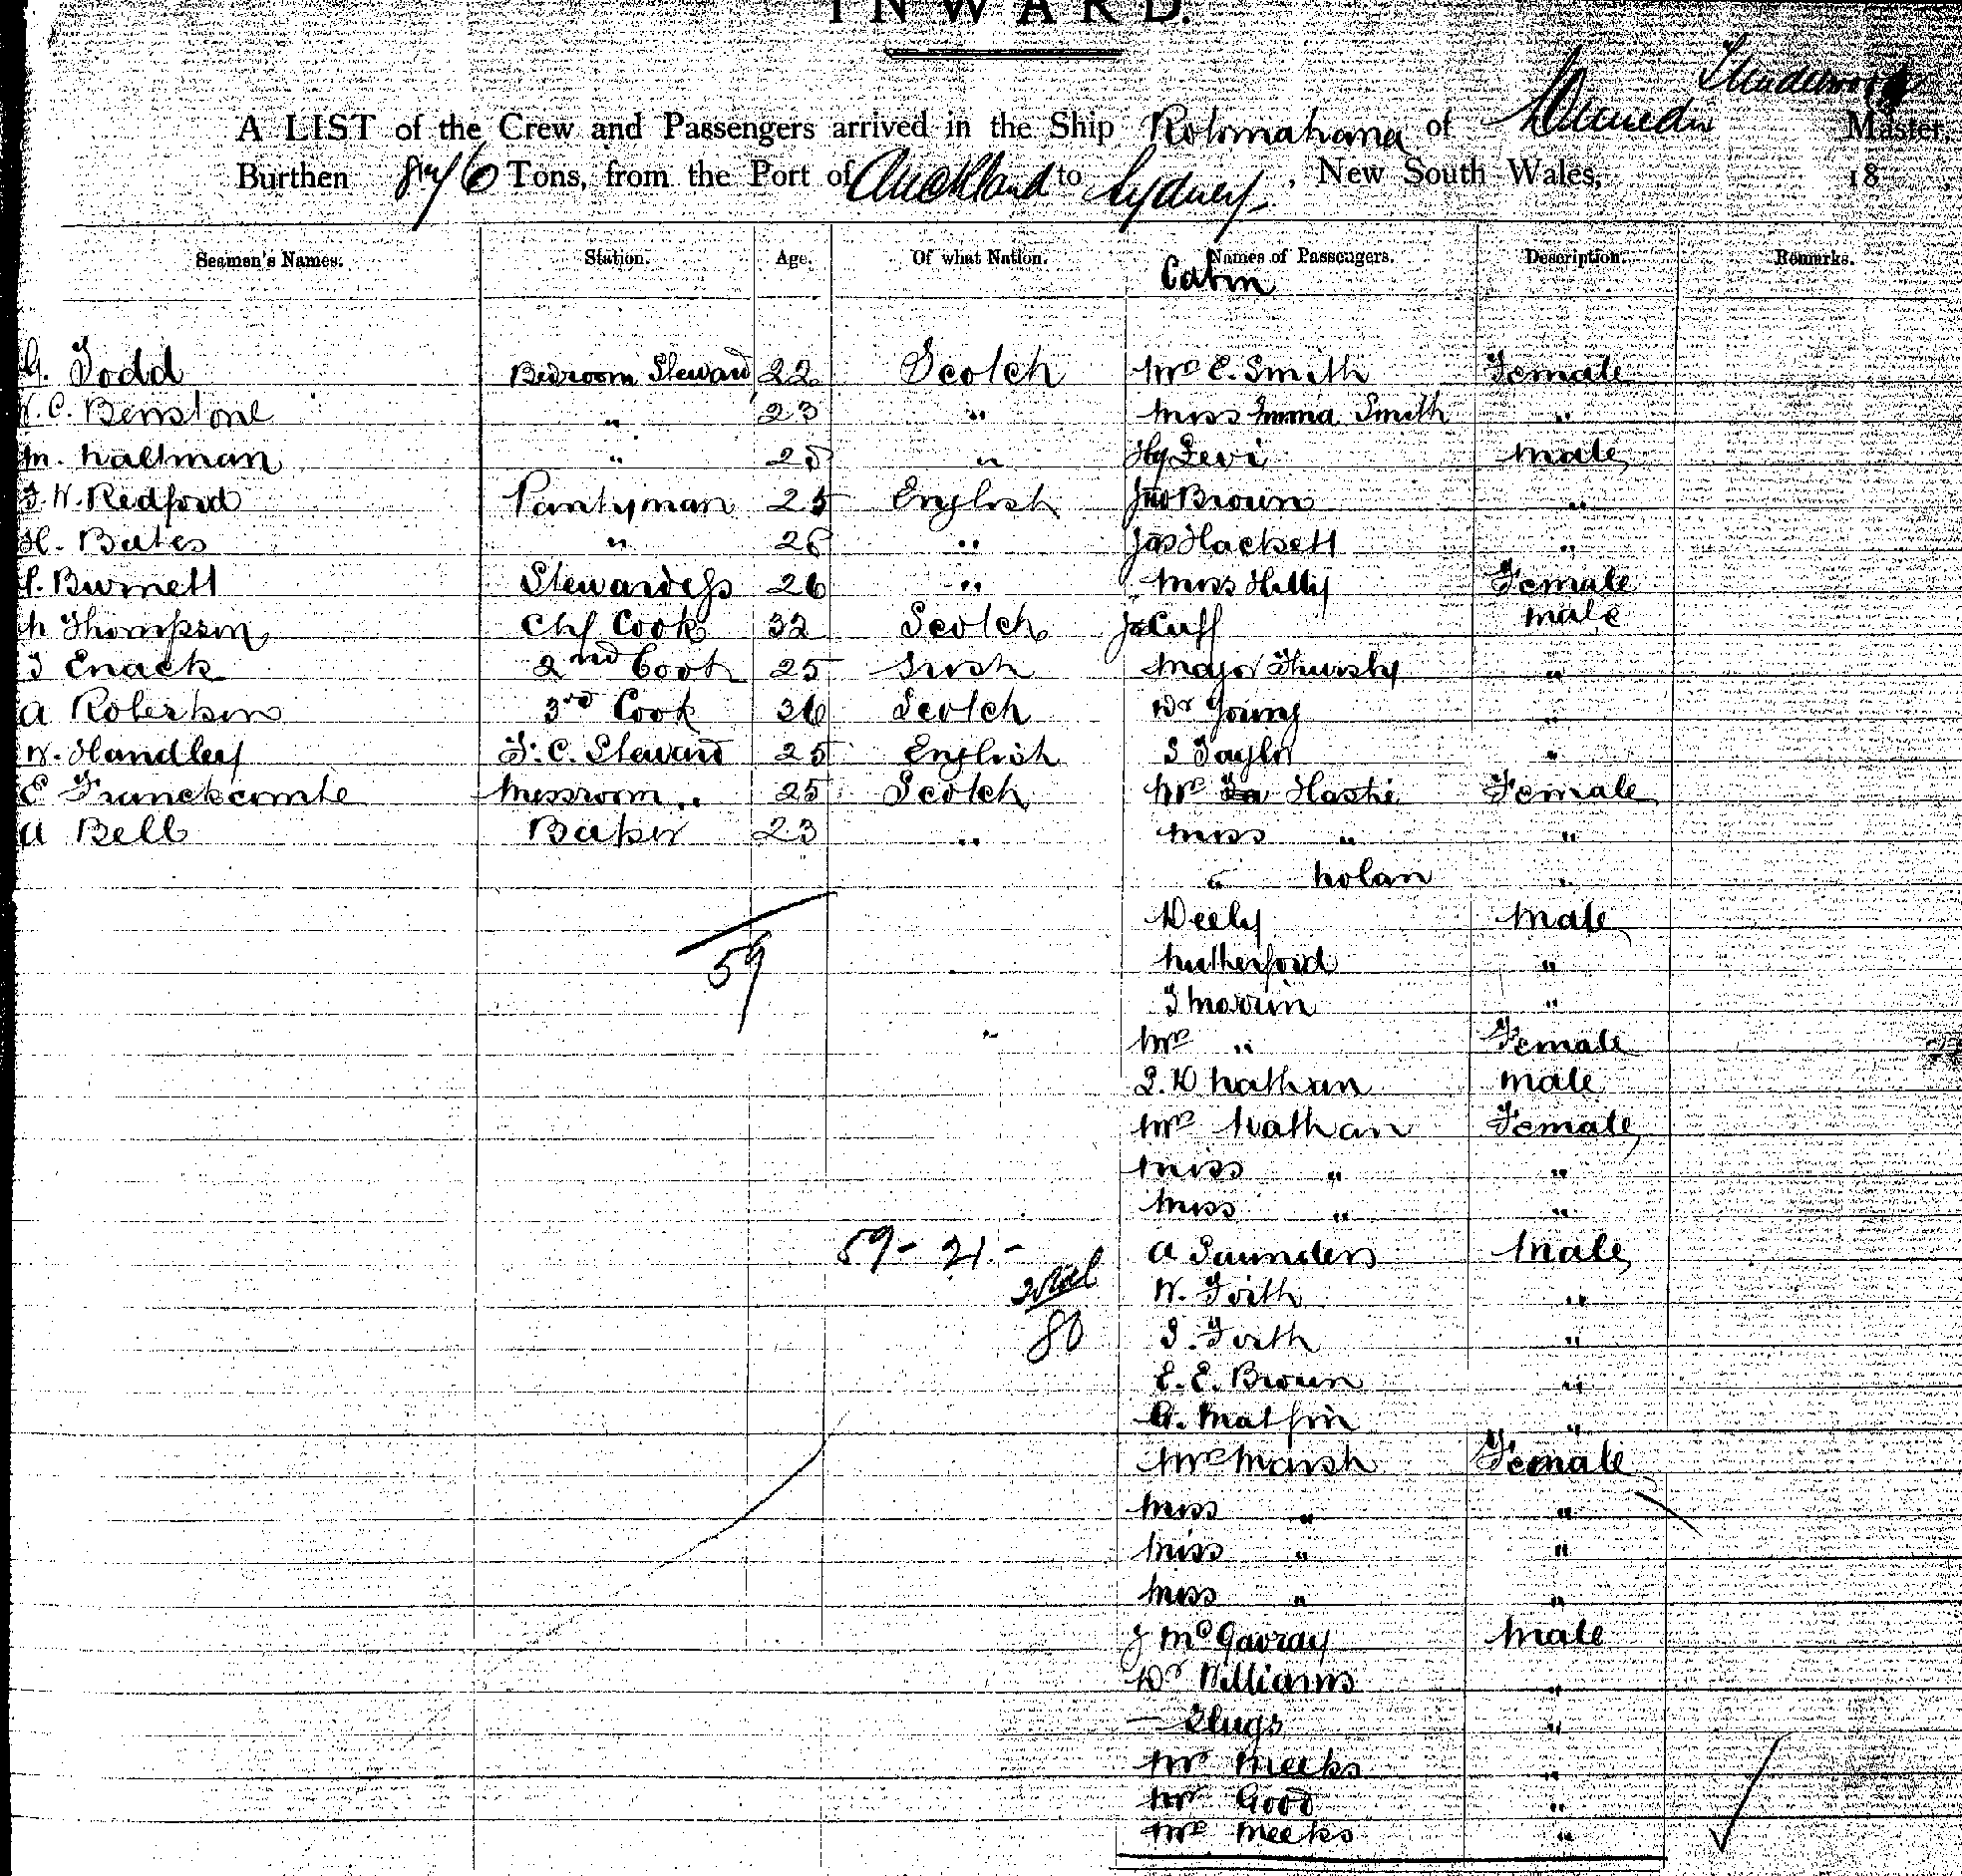 INWARD.
Underwood
A LIST of the Crew and Passengers arrived in the Ship Rotomahana of Dunedin Master,
Burthen Tons, from the Port of Auckland to Sydney, New South Wales, 18 ,
Seamen's Names. Station. Age. Of what Nation. Names of Passengers. Description. Remarks.
Cabin
G. Todd Bedroom Steward 22 Scotch Mrs E. Smith Female
C. Benstone " 23 " Miss Emma Smith "
M. Hallman " 25 " Hy Levi Male
J. W. Redford Pantryman 25 English Jno Brown "
H. Bates " 26 " Jas Hackett "
Burnett Stewardess 26 " Miss Hilly Female
Thompson Chf Cook 32 Scotch Jo Cuff Male
Enack 2nd Cook 25 Irish Major Thursby "
A Robertson 3rd Cook 36 Scotch Dr Young "
W. Handley F. C. Steward 25 English S Taylor "
E Franckcombe Messroom " 25 Scotch Mrs Hastie Female
A Bell Baker 23 " Miss " "
" Nolan "
Deely Male
59 Rutherford "
J Morrin "
" Mrs " Female
L. D Nathan Male
Mrs Nathan Female
Miss " "
Miss " "
59 - 21 - A Saunders Male
Total W. Firth "
80 J. Firth "
E. E. Brown "
G. Matfin "
Mrs Marsh Female
Miss " "
Miss " "
Miss " "
J McGavray Male
Dr Williams "
— Slugs "
Mr Meeks "
Mr Good "
Mrs Meeks "